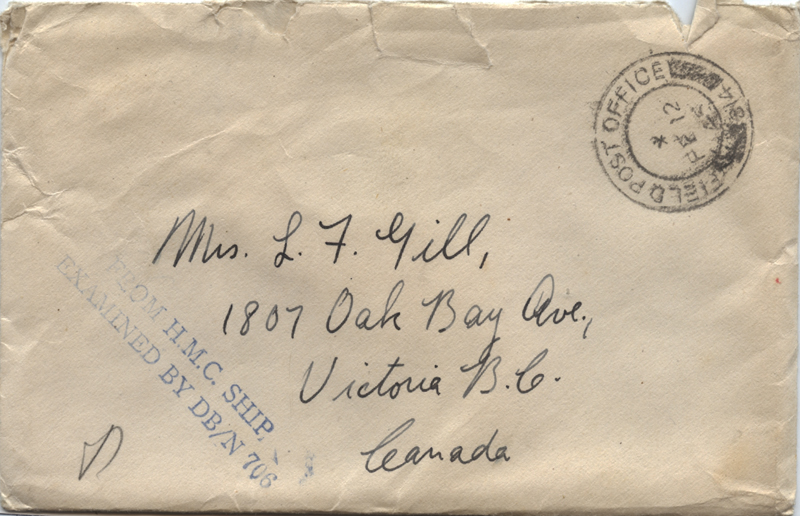 FIELD POST OFFICE
12
Mrs. L. F. Gill,
1807 Oak Bay Ave.,
Victoria B.C.
Canada
FROM H.M.C. SHIP,
EXAMINED BY DB/N 706